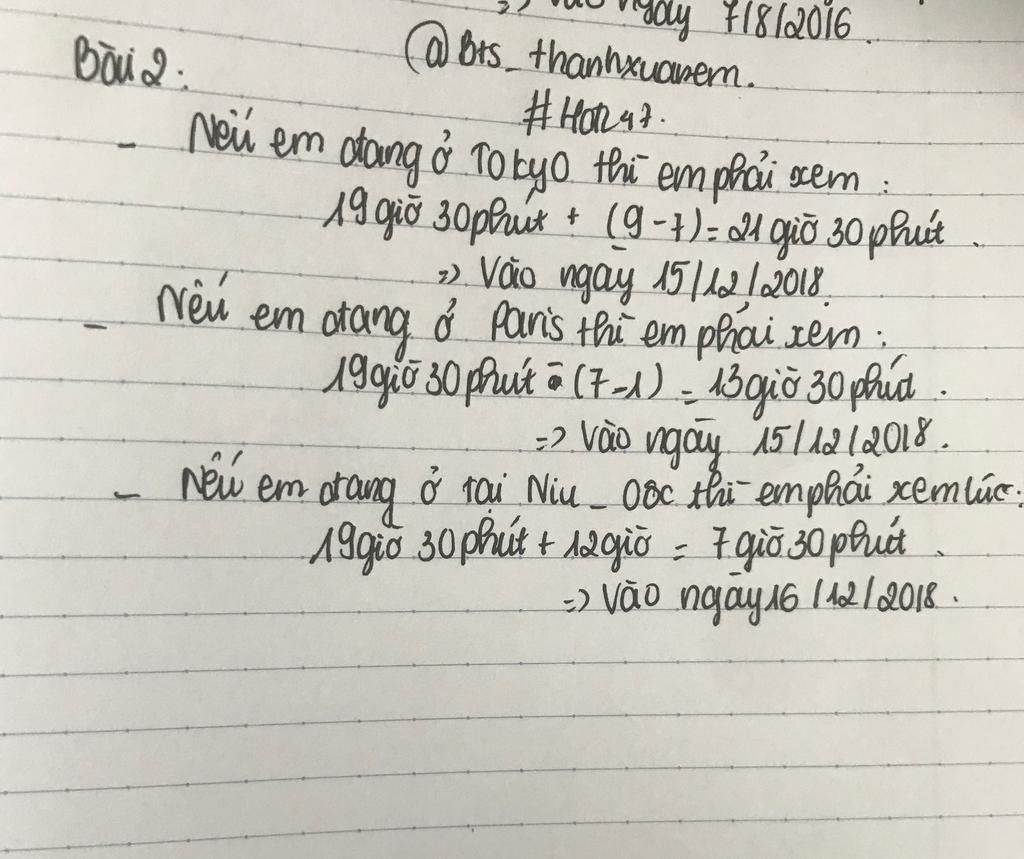 => Vào ngày 7/8/2016.
@Bts_thanhxuanem.
Bài 2:
#Han47.
- Nếu em đang ở Tokyo thì em phải xem:
19 giờ 30 phút + (9-7) = 21 giờ 30 phút.
=> Vào ngày 15/12/2018.
- Nếu em đang ở Paris thì em phải xem:
19 giờ 30 phút - (7-1) = 13 giờ 30 phút.
=> Vào ngày 15/12/2018.
- Nếu em đang ở tại Niu_Oóc thì em phải xem lúc:
19 giờ 30 phút + 12 giờ = 7 giờ 30 phút.
=> Vào ngày 16/12/2018.